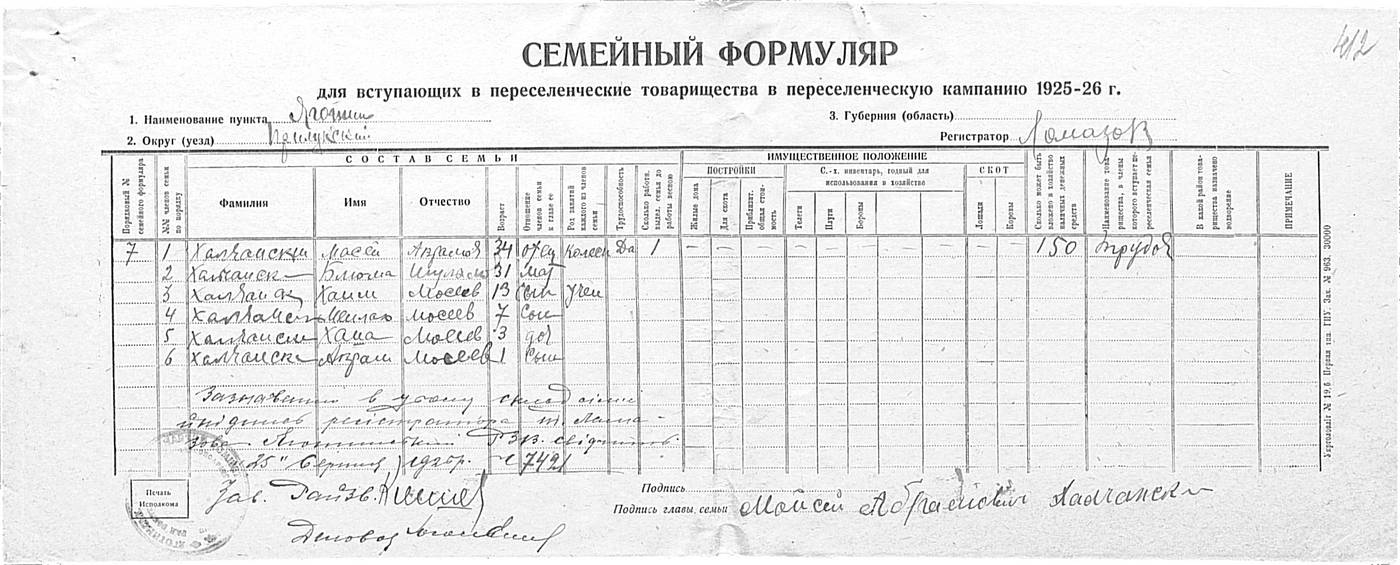 412
СЕМЕЙНЫЙ ФОРМУЛЯР
для вступающих в переселенческие товарищества в переселенческую кампанию 1925-26 г.
1. Наименование пункта Яготин
3. Губерния (область)
2. Округ (уезд) Прилукский
Регистратор Ломазов
СОСТАВ СЕМЬИ
ИМУЩЕСТВЕННОЕ ПОЛОЖЕНИЕ
Порядковый № семейного формуляра
№№ членов семьи по порядку
Фамилия
Имя
Отчество
Возраст
Отношение членов семьи к главе ее
Род занятий каждого из членов семьи
Трудоспособность
Сколько работн. выдел. семья до работы весною
ПОСТРОЙКИ
Жилые дома
Для скота
Приблизит. общая стоимость
С.-х. инвентарь, годный для использования в хозяйстве
Телеги
Плуги
Бороны
СКОТ
Лошади
Коровы
Сколько может быть вложено в хозяйство наличных денежных средств
Наименование товарищества, в члены которого вступает переселенческая семья
В какой район товарищества назначено водворение
ПРИМЕЧАНИЕ
7 1 Халчански Мосей Абрамов 34 отец Да 1 — — — — — — — — 150
2 Халчански Блюма 31 мат
3 Халчанск Хаим Мосеев 13 Сын учен
4 Халчански Мосеев 7 Сын
5 Халчански Хана Мосеев 3 доч
6 Халчански Абрам Мосеев 1 Сын
склад
підпис регистратора т. Лома
зова Яготинський
„25" Серпня № 7421
Зав.
Печать Исполкома
Подпись
Подпись главы семьи Мойсей Абрамович Халчански
Укрголовліт № 19,6 Первая тип. ГИУ. Зак. № 963. 30000